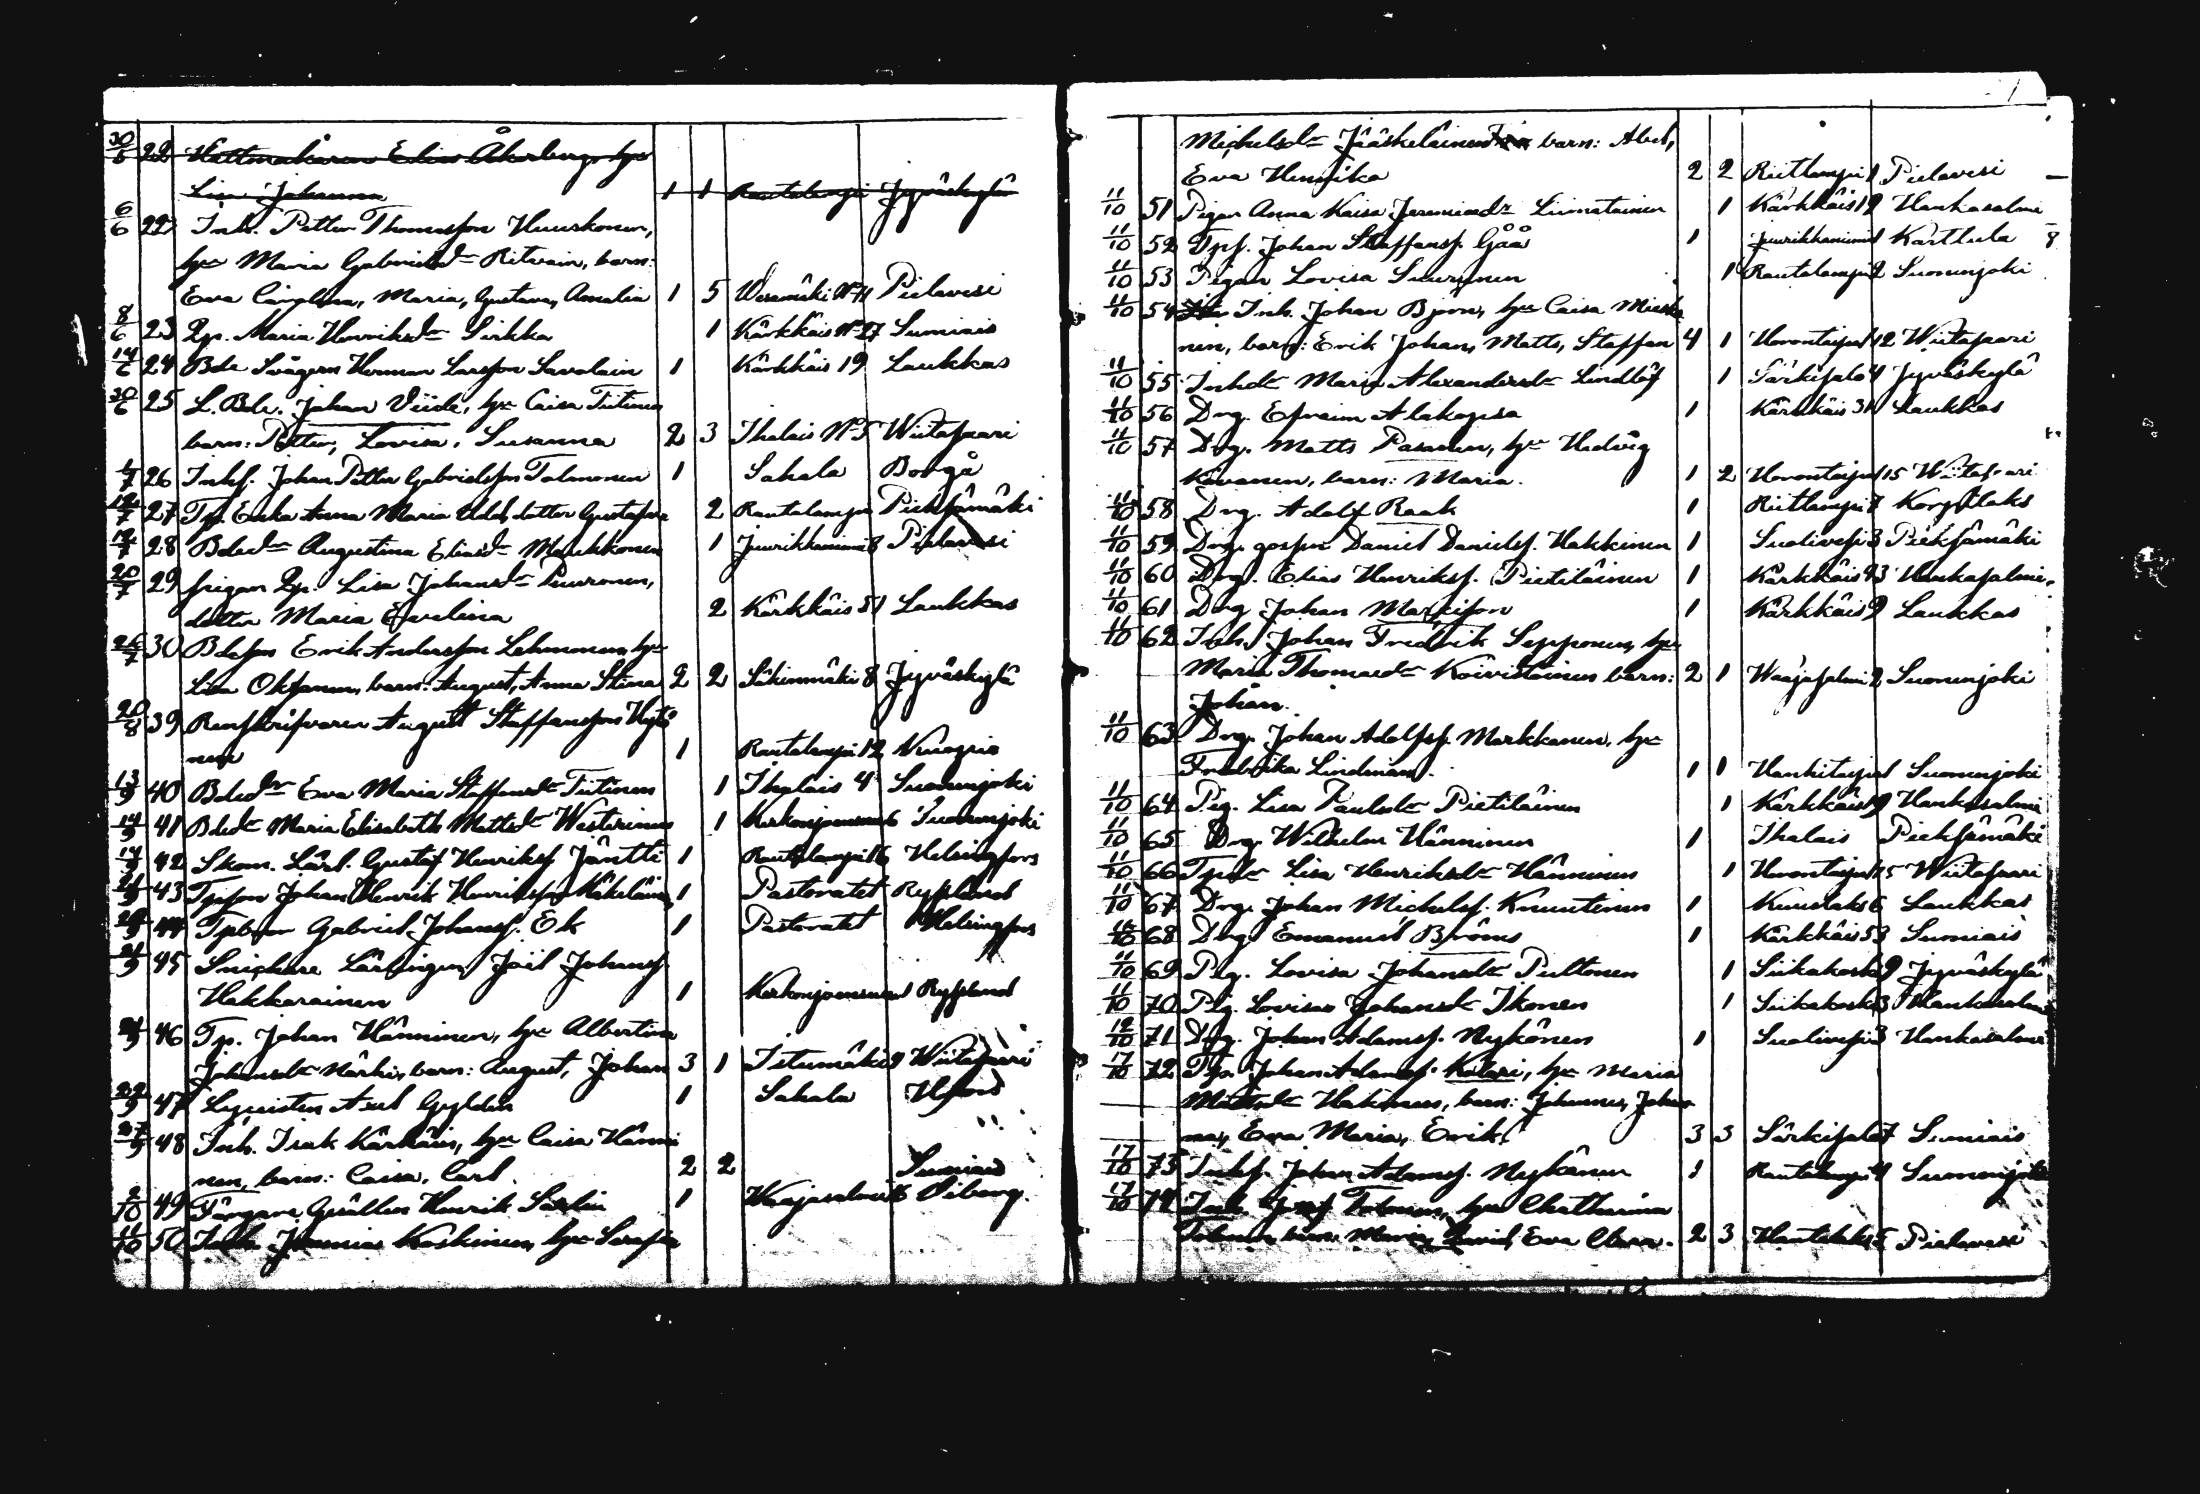 30/5 22 Hattmakaren Elias Åkerberg, h:u
Lisa Johanna 1 1 Rautalampi Jyväskylä
6/6 22 Inh. Petter Thomasson Huuskonen,
h:u Maria Gabrielsdr Ritvain, barn:
Eva Carolina, Maria, Gustava, Amalia 1 5 Wesamäki N:11 Pielavesi
8/6 23 Qp. Maria Henriksdr Sirkka 1 Kärkkäis N:27 Sumiais
14/6 24 Bde Svågern Herman Larsson Savolain 1 Kärkkäis 19 Laukkas
30/6 25 L. Bde. Johan Viide, h:u Caisa Tiitinen
barn: Petter, Lovisa, Susanna 2 3 Ihalais N:5 Wiitasaari
1/7 26 Inhs. Johan Petter Gabrielsson Tolmonen 1 Sahala Borgå
12/7 27 Tp. Enka Anna Maria dotter Gustafva 2 Rautalampi Pieksämäki
12/7 28 Bdedr Augustina Eliasdr Maukkonen 1 Juurikkaniemi 8 Pielavesi
20/7 29 frigan Qp. Lisa Johansdr Puuronen,
dotter Maria Evelina 2 Kärkkäis 51 Laukkas
26/7 30 Bdeson Erik Andersson Lehmonen, h:u
Lisa Oksanen, barn: August, Anna Stina 2 2 Säkinmäki 8 Jyväskylä
20/8 39 Renskrifvaren August Staffansson Hytö
nen 1 Rautalampi 12 Kuopio
13/9 40 Bdedr Eva Maria Staffansdr Tiitinen 1 Ihalais 4 Suonenjoki
14/9 41 Bdedr Maria Elisabeth Mattsdr Westerinen 1 Kerkonjoensuu 6 Suonenjoki
14/9 42 Skom. Lärl. Gustaf Henriksf. Jäntti 1 Rautalampi 16 Helsingfors
21/9 43 Tpson Johan Henrik Henriksson Mäkeläinen 1 Pastoratet Ryssland
44 Gabriel Johansf. Ek 1 Pastoratet Helsingfors
21/9 45 Snickare Lärlingen Joël Johansf.
Hakkarainen 1 Kerkonjoensuu Ryssland
21/9 46 Tp. Johan Hänninen, h:u Albertina
Johansdr Närhi, barn: August, Johan 3 1 Istunmäki 9 Wiitasaari
22/9 47 Lyceisten Axel Gyldén 1 Sahala Hfors
27/9 48 Inh. Isak Kärkäin, h:u Caisa Hänni
nen, barn: Caisa, Carl. 2 2 Sumiais
2/10 49 Färgare Gesällen Henrik Särlin 1 Waajasalmi 6 Viborg.
11/10 50 Jeremias Koskinen, h:u Serafia
Michelsdr Jääskeläinen barn: Abel,
Eva Henrika 2 2 Riitlampi 1 Pielavesi
11/10 51 Pigan Anna Kaisa Jeremiasdr Liimatainen 1 Kärkkäis 12 Hankasalmi
11/10 52 Tpf. Johan Staffansf. Gåå 1 Juurikkaniemi Karttula
11/10 53 Pigan Lovisa Suuronen 1 Rautalampi 2 Suonenjoki
11/10 54 Inh. Johan Björn, h:u Caisa Mieski
nen, barn: Erik Johan, Matts, Staffan 4 1 Horontaipal 12 Wiitasaari
11/10 55 Inhdr Maria Alexandersdr Lindlöf 1 Särkisalo 4 Jyväskylä
11/10 56 Dng. Efraim Alakopsa 1 Kärkkäis 31 Laukkas
11/10 57 Dng. Matts Pasanen, h:u Hedvig
Kovanen, barn: Maria. 1 2 Horontaipal 15 Wiitasaari
11/10 58 Dng. Adolf Raak 1 Riitlampi 7 Korpilaks
11/10 59 Dng. gossen Daniel Danielsf. Hakkinen 1 Suolivesi 3 Pieksämäki
11/10 60 Dng. Elias Henriksf. Pietiläinen 1 Kärkkäis 43 Hankasalmi
11/10 61 Dng Johan Mattsson 1 Kärkkäis 9 Laukkas
11/10 62 Inh. Johan Fredrik Sepponen, h:u
Maria Thomasdr Koivistoinen barn: 2 1 Waajasalmi 2 Suonenjoki
Johan.
11/10 63 Dng. Johan Adolfsf. Markkanen, h:u
Fredrika Lindman. 1 1 Hankitaipal Suonenjoki
11/10 64 Pig. Lisa Paulsdr Pietiläinen 1 Kärkkäis 19 Hankasalmi
11/10 65 Dng Wilhelm Hänninen 1 Ihalais Pieksämäki
11/10 66 Tpdr Lisa Henriksdr Hänninen 1 Horontaipal 15 Wiitasaari
11/10 67 Dng. Johan Michelsf. Knuutinen 1 Kuuslaks 6 Laukkas
68 Dng. Emanuel Broms 1 Kärkkäis 53 Sumiais
11/10 69 Pig. Lovisa Johansdr Peltonen 1 Siikakoski 9 Jyväskylä
11/10 70 Pig. Lovisa Johansdr Ikonen 1 Siikakoski 3 Hankasalmi
12/10 71 Dng. Johan Adamsf. Nykänen 1 Suolivesi 3 Hankasalmi
17/10 72 Tp. Johan Adamsf. Kolari, h:u Maria
Mattsdr Hakkinen, barn: Johannes, Johan
na, Eva Maria, Erik. 3 3 Särkisalo 7 Sumiais
17/10 73 Inhsf. Johan Adamsf. Nykänen 1 Rautalampi 4 Suonenjoki
17/10 74 Inh. Josef Tolonen, h:u Chatharina
Tolonen, barn: Maria, David, Eva Clara. 2 3 Hantalaks 5 Pielavesi